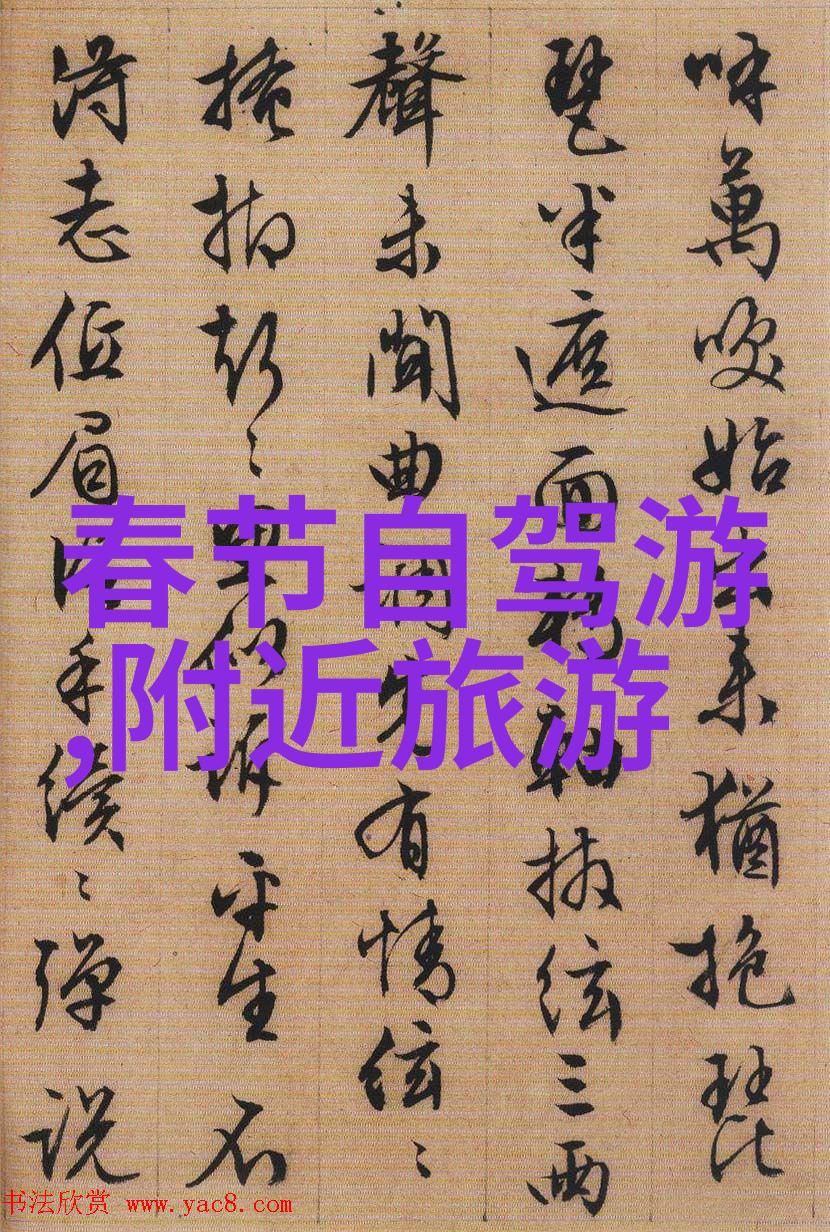 呼萬喚始出来猶抱琵
琶半遮面轉軸撥絃三兩
聲未聞曲調先有情絃〻
掩抑聲〻思似訴平生不
得志低眉信手續〻彈說
春节自驾游
,附近旅游
书法欣赏 www.yac8.com